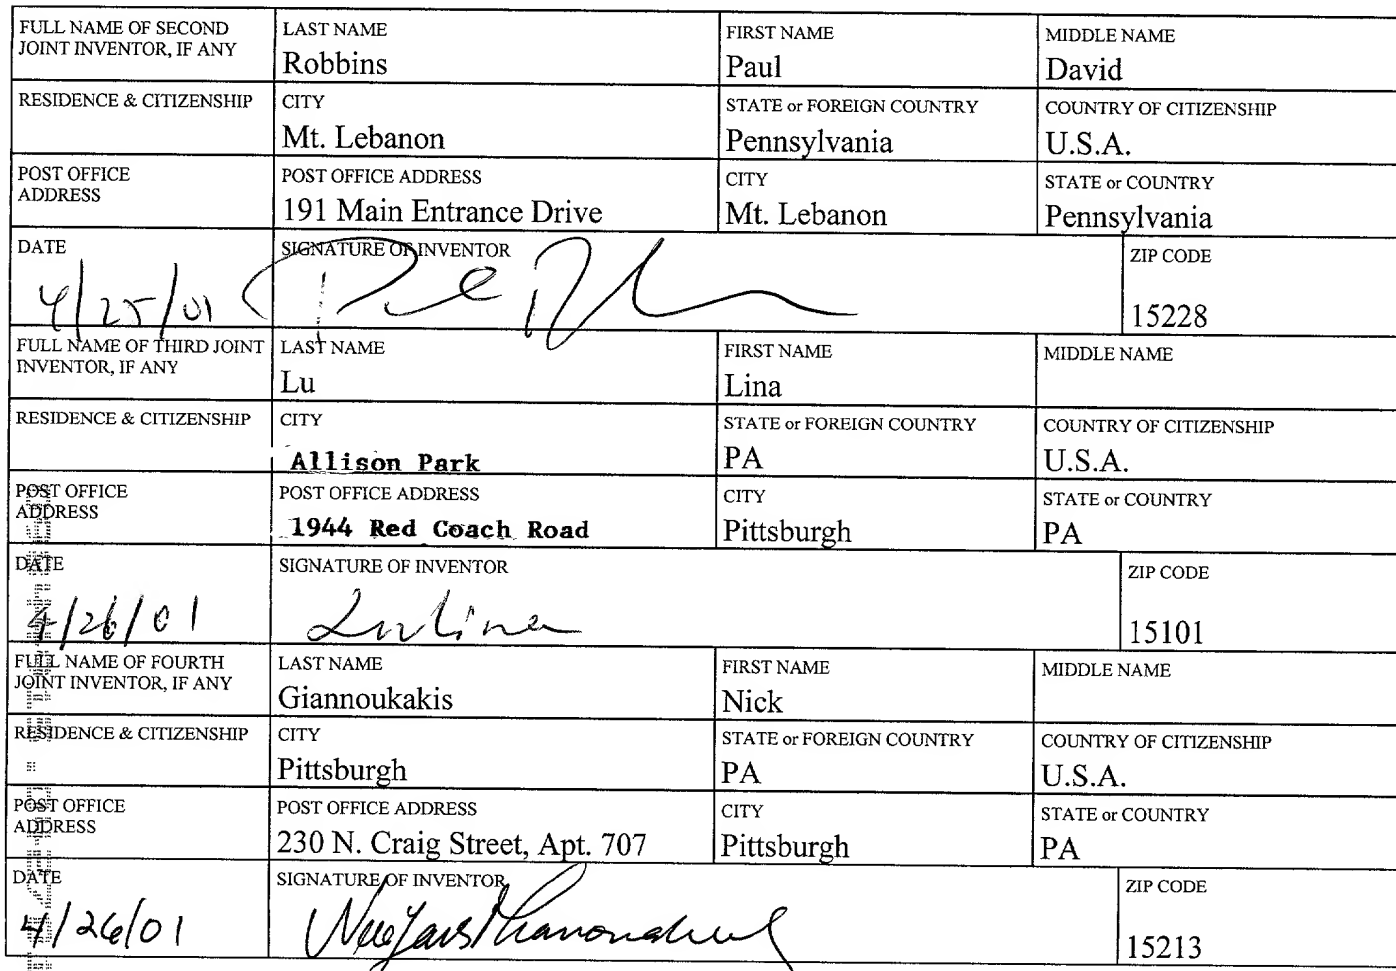 FULL NAME OF SECOND JOINT INVENTOR, IF ANY
LAST NAME
Robbins
FIRST NAME
Paul
MIDDLE NAME
David
RESIDENCE & CITIZENSHIP
CITY
Mt. Lebanon
STATE or FOREIGN COUNTRY
Pennsylvania
COUNTRY OF CITIZENSHIP
U.S.A.
POST OFFICE
ADDRESS
POST OFFICE ADDRESS
191 Main Entrance Drive
CITY
Mt. Lebanon
STATE or COUNTRY
Pennsylvania
DATE
4/25/01
SIGNATURE OF INVENTOR
ZIP CODE
15228
FULL NAME OF THIRD JOINT
INVENTOR, IF ANY
LAST NAME
Lu
FIRST NAME
Lina
MIDDLE NAME
RESIDENCE & CITIZENSHIP
CITY
Allison Park
STATE or FOREIGN COUNTRY
PA
COUNTRY OF CITIZENSHIP
U.S.A.
POST OFFICE
ADDRESS
POST OFFICE ADDRESS
1944 Red Coach Road
CITY
Pittsburgh
STATE or COUNTRY
PA
DATE
4/26/01
SIGNATURE OF INVENTOR
Lu Lina
ZIP CODE
15101
FULL NAME OF FOURTH
JOINT INVENTOR, IF ANY
LAST NAME
Giannoukakis
FIRST NAME
Nick
MIDDLE NAME
RESIDENCE & CITIZENSHIP
CITY
Pittsburgh
STATE or FOREIGN COUNTRY
PA
COUNTRY OF CITIZENSHIP
U.S.A.
POST OFFICE
ADDRESS
POST OFFICE ADDRESS
230 N. Craig Street, Apt. 707
CITY
Pittsburgh
STATE or COUNTRY
PA
DATE
4/26/01
SIGNATURE OF INVENTOR
ZIP CODE
15213